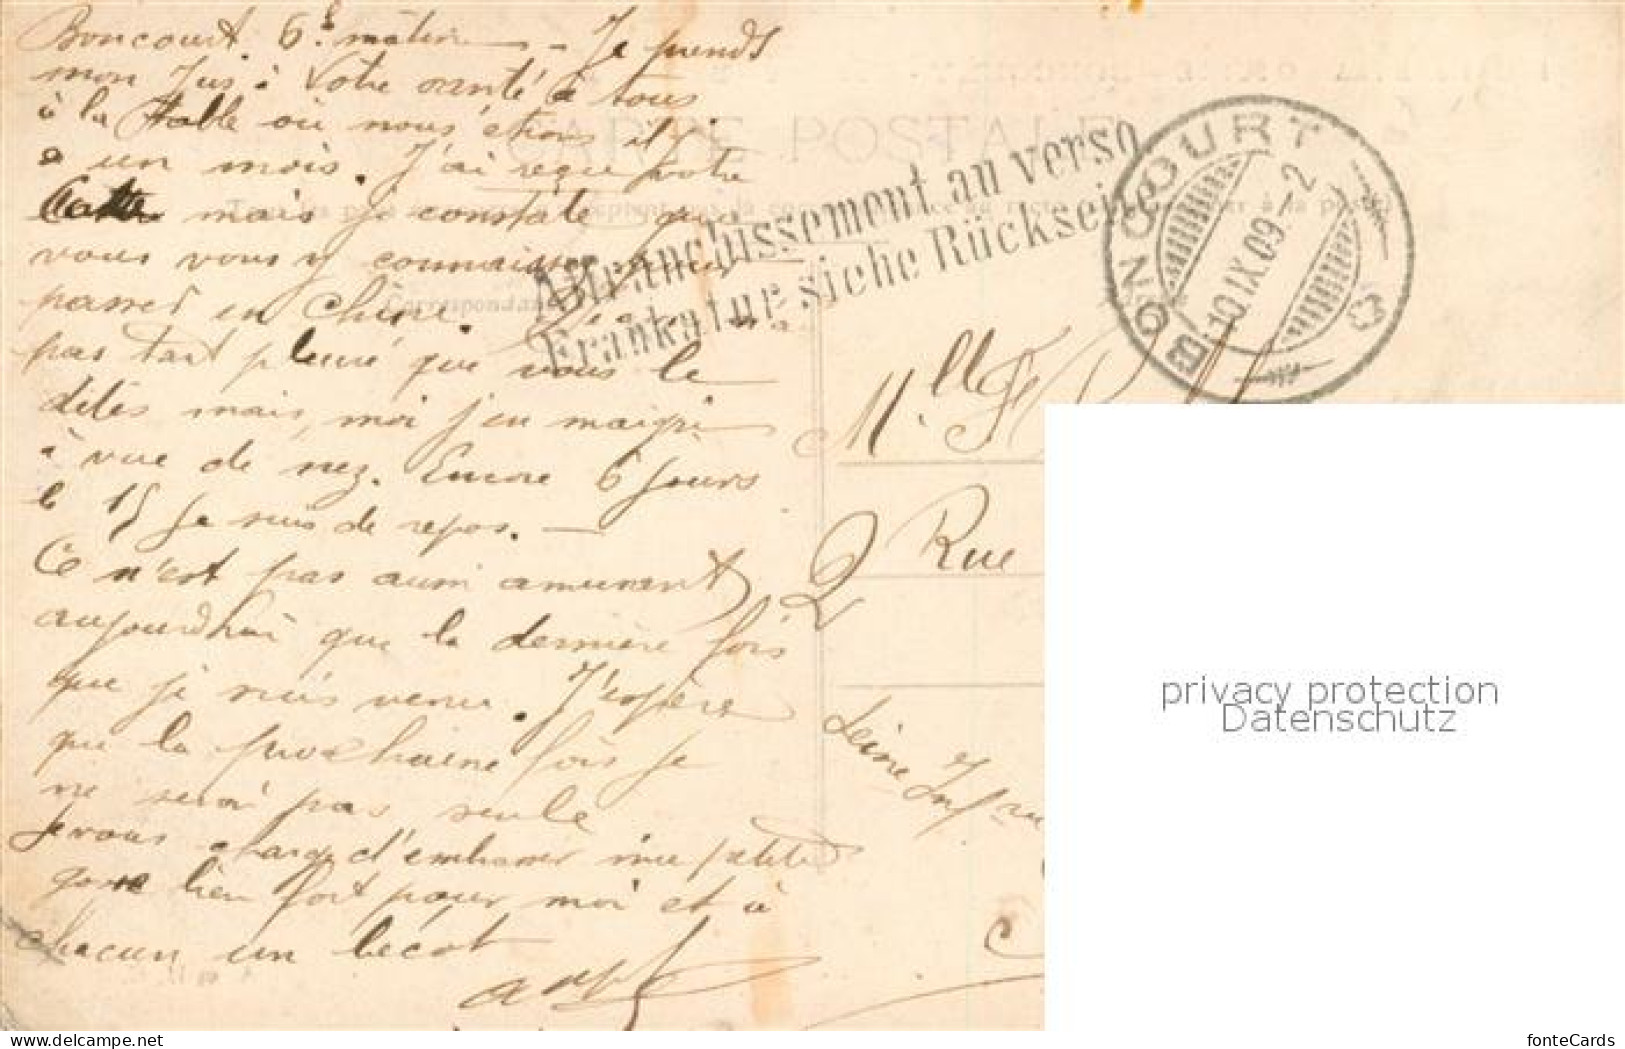 Boncourt. 6h matin — Je prends
mon Jus à Votre santé à tous
à la table où nous étions il y
a un mois. J'ai reçu votre
Carte mais je constate que
vous vous y connaissez pour
passer en Chine.
pas tant pleuré que vous le
dites mais, moi j'en maigri
à vue de nez. Encore 6 jours
le 15 je suis de repos. —
Ce n'est pas aussi amusant
aujourd'hui que la dernière fois
que je suis venu. J'espère
que la prochaine fois je
ne serai pas seule
Je vous charge d'embrasser
bien fort pour moi et à
chacun un bécot
CARTE POSTALE
Correspondance
Affranchissement au verso
Frankatur siehe Rückseite
BONCOURT
10.IX.09.-2
Mlle
2 Rue
Seine Infre
privacy protection
Datenschutz
fonteCards
www.oldthing.de